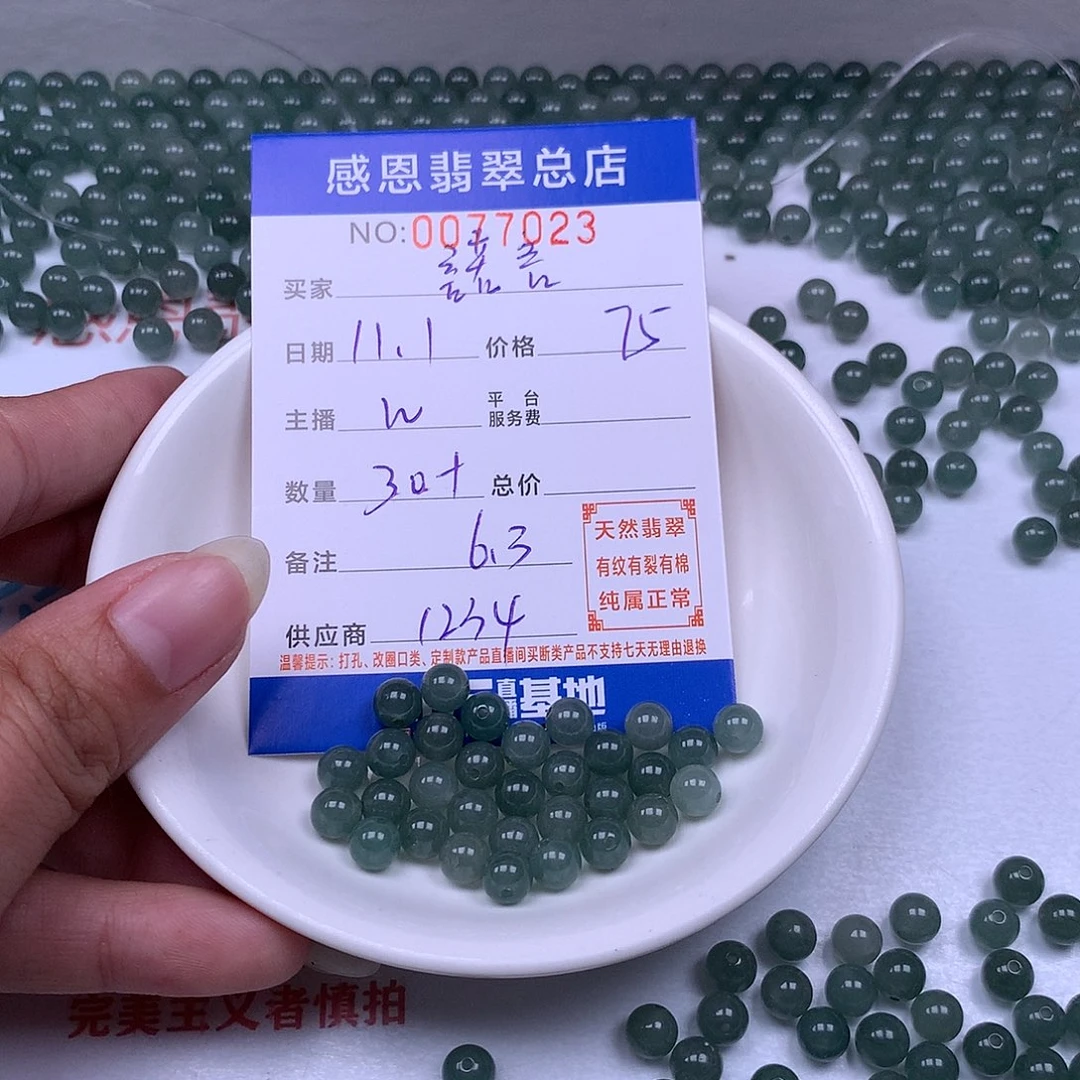 感恩翡翠总店
NO:0077023
买家
日期 11.1 价格 75
主播 W 平台服务费
数量 30+ 总价
备注 6.3
供应商 1234
天然翡翠
有纹有裂有棉
纯属正常
温馨提示:打孔、改圈口类、定制款产品直播间买断类产品不支持七天无理由退换
直播基地
完美主义者慎拍